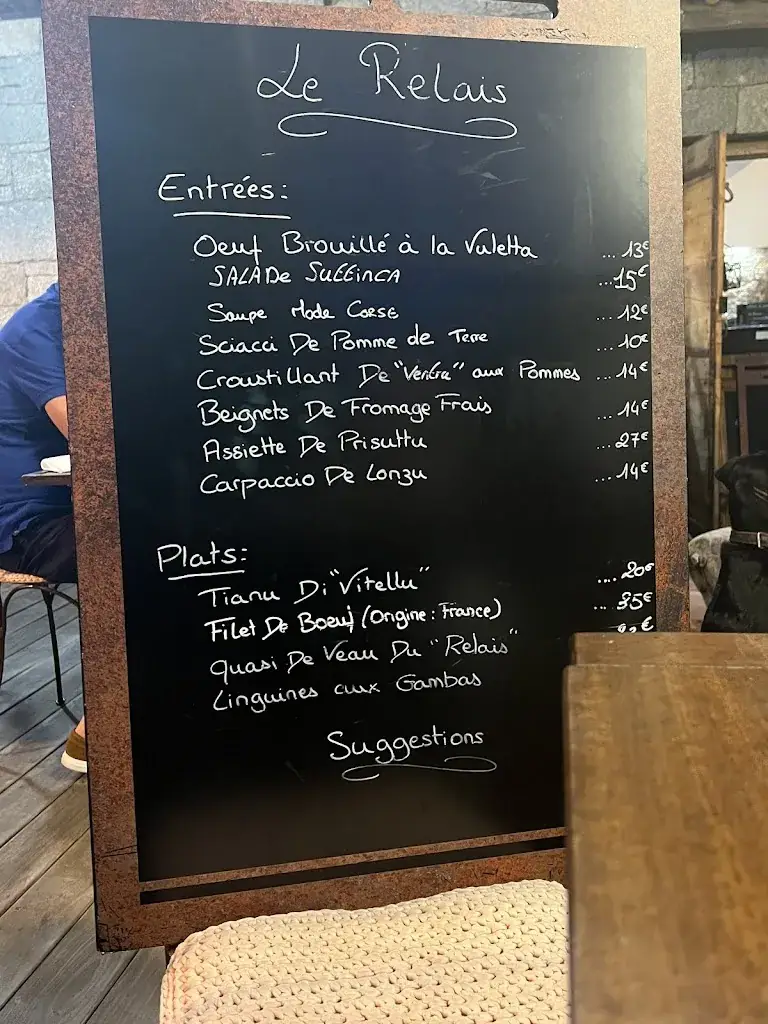 Le Relais
Entrées:
Oeuf Brouillé à la Vuletta ... 13€
SALADe SUCCinCA ...15€
Soupe Mode CORSE ... 12€
Sciacci De Pomme de Terre ... 10€
Croustillant De "Ventra" aux Pommes ... 14€
Beignets De Fromage Frais ... 14€
Assiette De Prisuttu ... 27€
Carpaccio De Lonzu ... 14€
Plats:
Tianu Di "Vitellu" .... 20€
Filet De Boeuf (Origine: France) ... 35€
Quasi De Veau Du "Relais"
Linguines aux Gambas
Suggestions